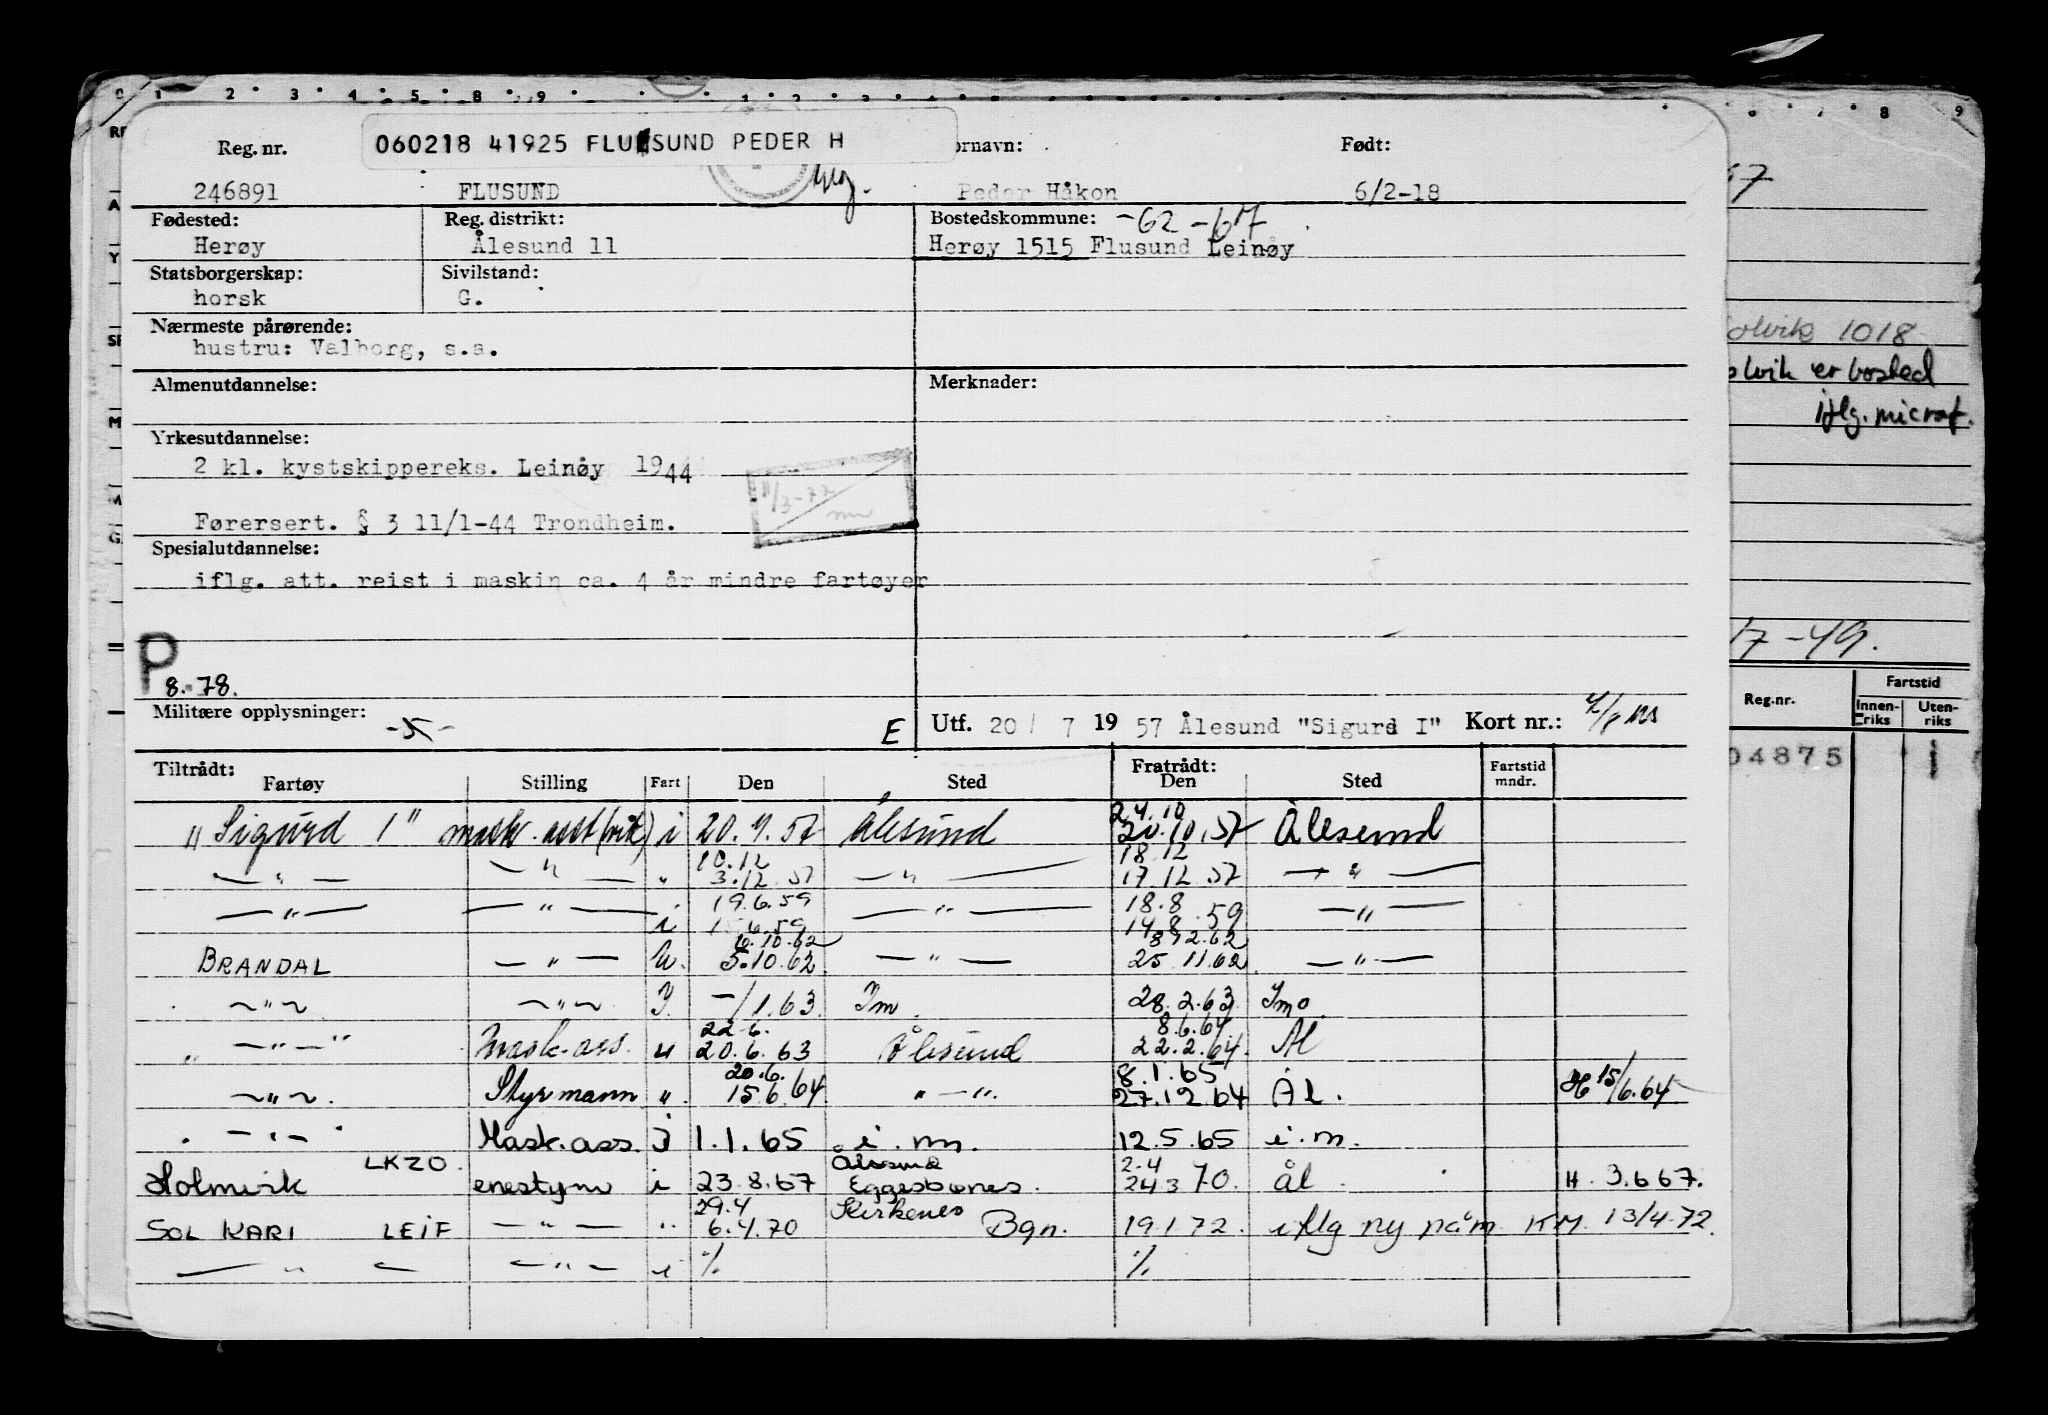 060218 41925 FLUSUND PEDER H
Reg. nr. ornavn: Født:
246891 FLUSUND Peder Håkon 6/2-18
Fødested: Reg. distrikt: Bostedskommune: -62 -67
Herøy Ålesund 11 Herøy 1515 Flusund Leinøy
Statsborgerskap: Sivilstand:
norsk G.
Nærmeste pårørende:
hustru: Valborg, s.a.
Almenutdannelse: Merknader:
Yrkesutdannelse:
2 kl. kystskippereks. Leinøy 1944
Førersert. § 3 11/1-44 Trondheim.
Spesialutdannelse:
iflg. att. reist i maskin ca. 4 år mindre fartøyer
P
8. 78.
Militære opplysninger: E Utf. 20/ 7 19 57 Ålesund "Sigurd I" Kort nr.:
Tiltrådt: Fratrådt:
Fartøy Stilling Fart Den Sted Den Sted Fartstid mndr.
24.10
"Sigurd I" mask. asst i 20.7.57 Ålesund 20.10.57 Ålesund
10.12 18.12
— " — — " — " 3.12.57 — " — 17.12.57 — " —
19.6.59 18.8
— " — — " — i 15.6.59 — " — 14.8.59 — " —
6.10.62 8.12.62
BRANDAL — " — U. 5.10.62 — " — 25.11.62 — " —
— " — — " — I -/1.63 Im. 28.2.63 Imo.
22.6. 8.6.64
" — " — " Mask. ass. u 20.6.63 Ålesund 22.2.64. Ål
20.6. 8.1.65
— " — Styrmann " 15.6.64 " — " 27.12.64 Ål. H 15/6.64
— " — Mask. ass. I 1.1.65 i.m. 12.5.65 i.m.
LKZO Ålesund 2.4
Holmvik enestyrm i 23.8.67 Eggesbønes. 24 3 70. ål H. 3.6 67.
29.4 Kirkenes
SOL KARI LEIF — " — " 6.4.70 Bgn. 19.1 72. iflg ny påm. KM. 13/4-72.
— " — — " — i % %
olvik 1018
olvik er bosted
iflg. microf.
17-49.
Reg.nr. Fartstid
Innen-riks Uten-riks
04875 1